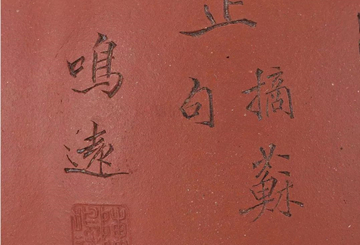 摘蘇
止句
鳴遠